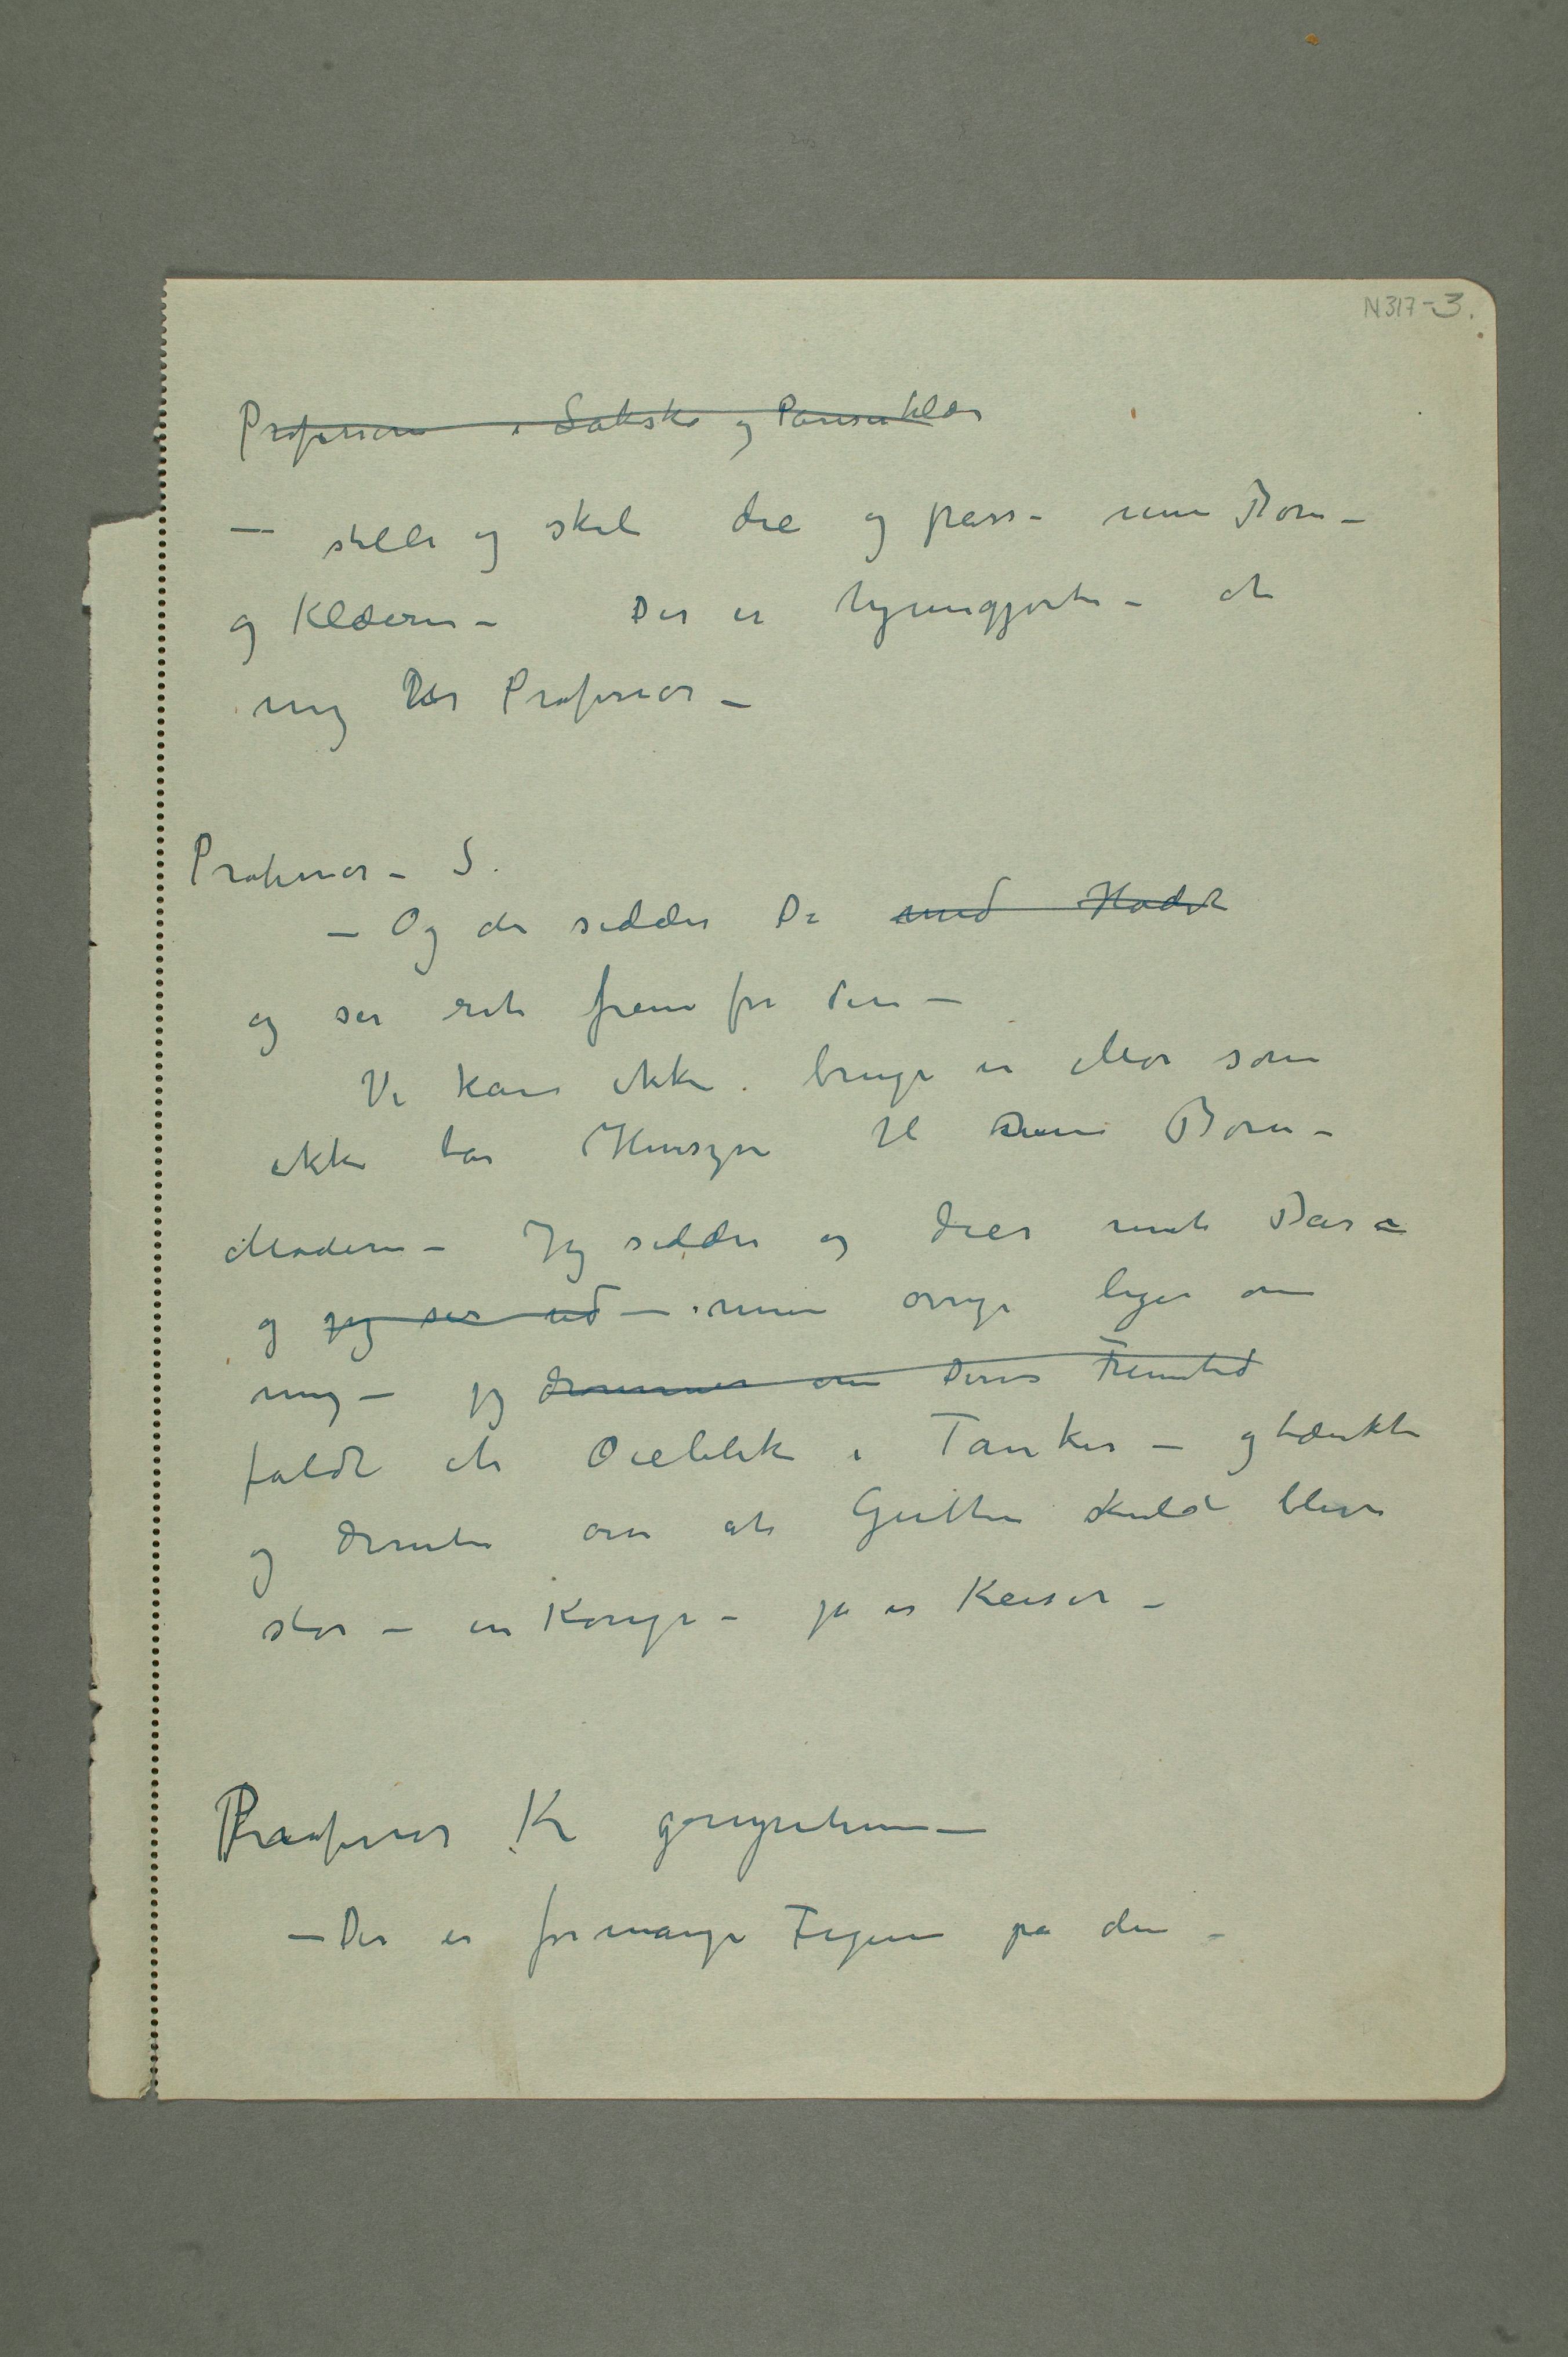 N317-3.
Professoren i Laksko og Pariserklær
— stelle og skal die og passe mine Born –
og Klæderne – Der er hjemmegjorte – at
mig Her Professor –
Professor – S.
— Og der sidder De med Hodet
og ser ret frem for Dem —
Vi kan ikke bruge en Mor som
ikke tar Hensyn til sine Born –
Moderen – Jeg sidder og dier mit Barn
og jeg ser ud — mine ovrige leger om
mig — jeg drømmer om Deres Fremtid
faldt et Oieblik i Tanker — og tænkte
og drømte om at Gutten skulde blive
stor – en Konge – ja en Keiser –
Professor K
— Der er for mange Figurer på den –